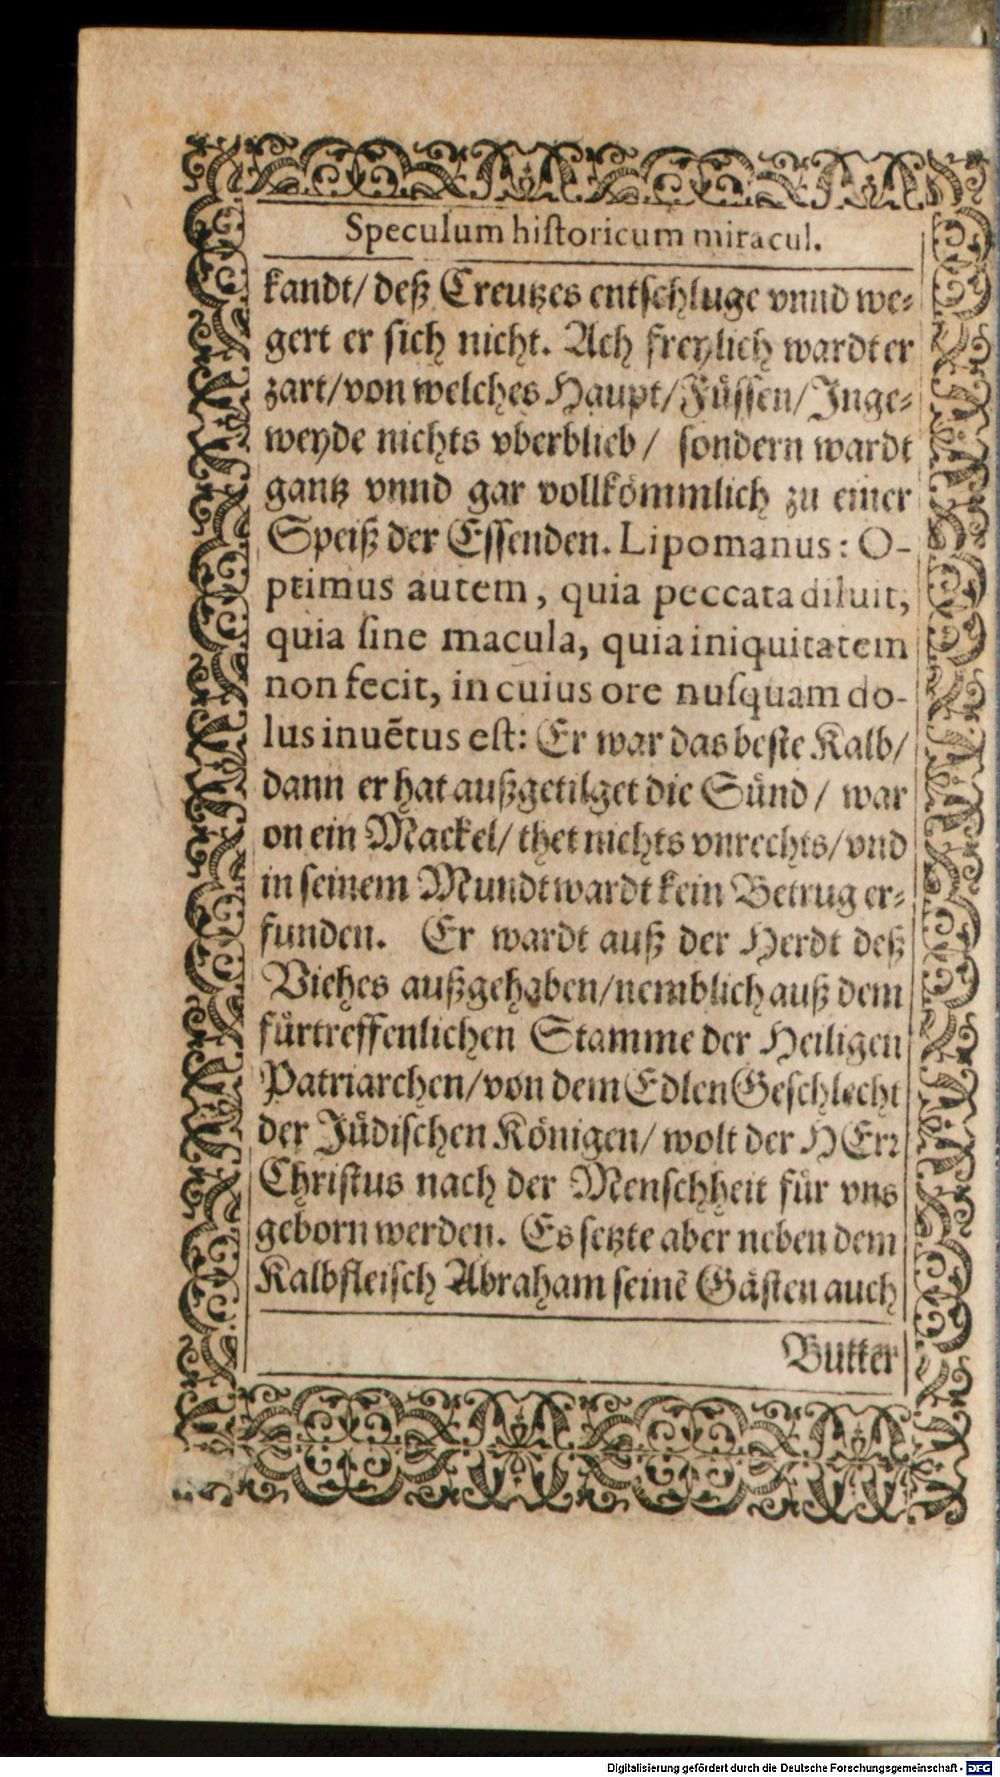 Speculum historicum miracul.
kandt/ deß Creutzes entschluge vnnd we-
gert er sich nicht. Ach freylich wardt er
zart/ von welches Haupt/ Füssen/ Inge-
weyde nichts vberblieb/ sondern wardt
gantz vnnd gar vollkömmlich zu einer
Speiß der Essenden. Lipomanus: O-
ptimus autem, quia peccata diluit,
quia sine macula, quia iniquitatem
non fecit, in cuius ore nusquam do-
lus inuẽtus est: Er war das beste Kalb/
dann er hat außgetilget die Sünd/ war
on ein Mackel/ thet nichts vnrechts/ vnd
in seinem Mundt wardt kein Betrug er-
funden. Er wardt auß der Herdt deß
Viehes außgehaben/ nemblich auß dem
fürtreffenlichen Stamme der Heiligen
Patriarchen/ von dem Edlen Geschlecht
der Jüdischen Königen/ wolt der HErr
Christus nach der Menschheit für vns
geborn werden. Es setzte aber neben dem
Kalbfleisch Abraham seinẽ Gästen auch
Butter
Digitalisierung gefördert durch die Deutsche Forschungsgemeinschaft - DFG